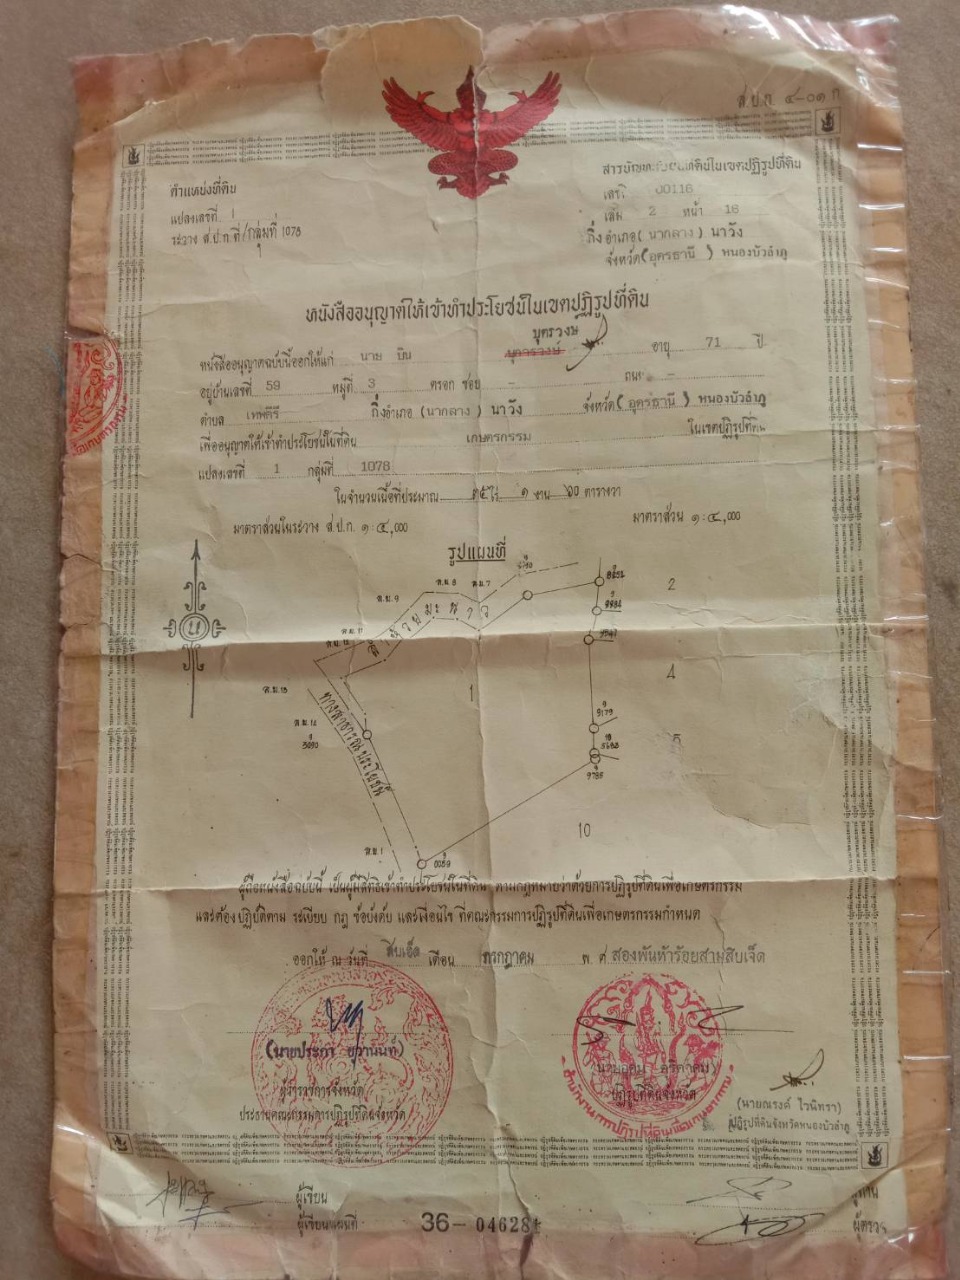 ส.ป.ก. ๔-๐๑ ก
ตำแหน่งที่ดิน
แปลงเลขที่ 1
ระวาง ส.ป.ก.ที่/กลุ่มที่ 1078
สารบัญทะเบียนที่ดินในเขตปฏิรูปที่ดิน
เลขที่ 00116
เล่ม 2 หน้า 16
กิ่งอำเภอ (นากลาง) นาวัง
จังหวัด (อุดรธานี) หนองบัวลำภู
หนังสืออนุญาตให้เข้าทำประโยชน์ในเขตปฏิรูปที่ดิน
บุตรวงษ์
หนังสืออนุญาตฉบับนี้ออกให้แก่ นาย บิน อายุ 71 ปี
อยู่บ้านเลขที่ 59 หมู่ที่ 3 ตรอก ซอย - ถนน -
ตำบล เทพคีรี กิ่งอำเภอ (นากลาง) นาวัง จังหวัด (อุดรธานี) หนองบัวลำภู
เพื่ออนุญาตให้เข้าทำประโยชน์ในที่ดิน เกษตรกรรม ในเขตปฏิรูปที่ดิน
แปลงเลขที่ 1 กลุ่มที่ 1078
ในจำนวนเนื้อที่ประมาณ ๓๕ ไร่ ๑ งาน ๖๐ ตารางวา
มาตราส่วนในระวาง ส.ป.ก. ๑:๔,000 มาตราส่วน ๑:๔,000
รูปแผนที่
น
ต.ม.8 ต.ม.7
ต.ม.9
ต.ม.11
ต.ม.13
ต.ม.14
3090
ต.ม.1
ลำห้วยมะนาว
ทางสาธารณประโยชน์
1
2
4
5
10
9179
5688
9785
ผู้ถือหนังสือฉบับนี้ เป็นผู้มีสิทธิเข้าทำประโยชน์ในที่ดิน ตามกฎหมายว่าด้วยการปฏิรูปที่ดินเพื่อเกษตรกรรม
และต้องปฏิบัติตาม ระเบียบ กฎ ข้อบังคับ และเงื่อนไข ที่คณะกรรมการปฏิรูปที่ดินเพื่อเกษตรกรรมกำหนด
ออกให้ ณ วันที่ สิบเอ็ด เดือน กรกฎาคม พ.ศ. สองพันห้าร้อยสามสิบเจ็ด
ผู้ว่าราชการจังหวัด
ประธานคณะกรรมการปฏิรูปที่ดินจังหวัด
ปฏิรูปที่ดินจังหวัด
(นายณรงค์ ไวนิทรา)
ปฏิรูปที่ดินจังหวัดหนองบัวลำภู
ผู้เขียน
ผู้เขียนแผนที่
36-04628
ผู้ตรวจ